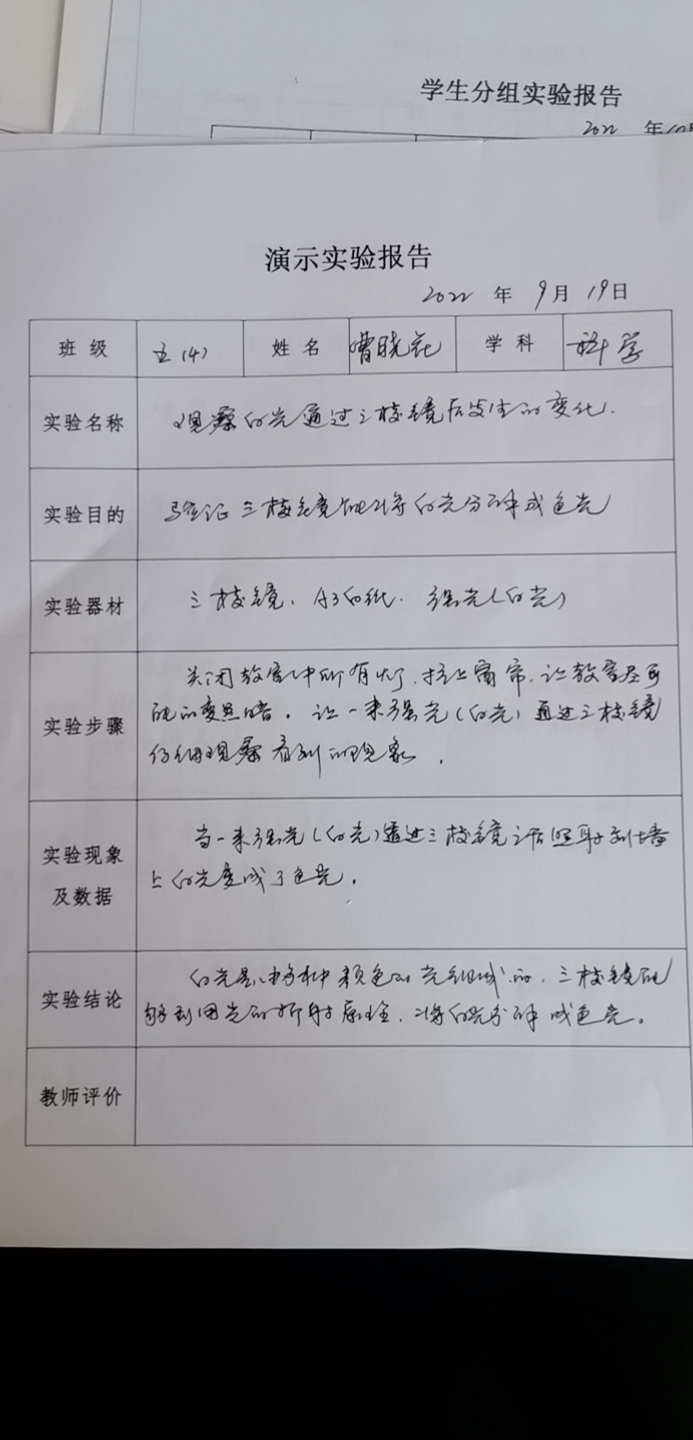 学生分组实验报告
2022 年 10月
演示实验报告
2022 年 9月 19日
班级 五(4) 姓名 曹晓花 学科 科学
实验名称 观察白光通过三棱镜后发生的变化.
实验目的 验证三棱镜能将白光分解成色光
实验器材 三棱镜、A3白纸. 强光(白光)
实验步骤
关闭教室中所有灯,拉上窗帘,让教室尽可
能的变黑暗。让一束强光(白光)通过三棱镜
仔细观察看到的现象.
实验现象
及数据
当一束强光(白光)透过三棱镜之后照射到墙
上白光变成了色光。
实验结论
白光是由多种颜色的光组成的,三棱镜能
够利用光的折射原理,将白光分解成色光。
教师评价